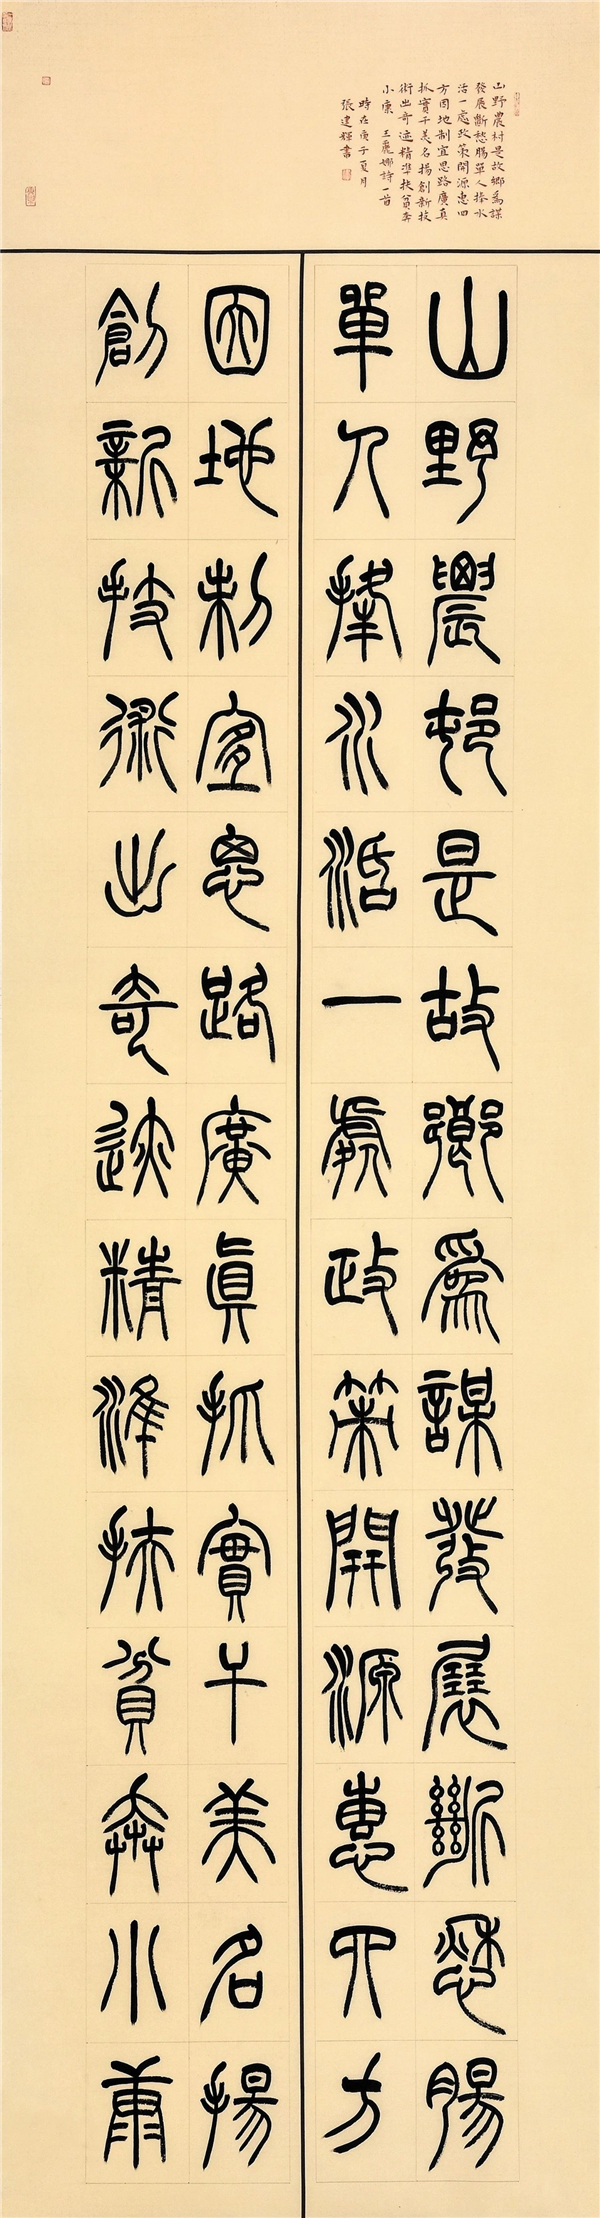 山野農村是故鄉為謀
發展斷愁腸單人捧水
活一處政策開源惠四
方因地制宜思路廣真
抓實干美名揚創新技
術出奇迹精準扶貧奔
小康 王麗娜詩一首
時在庚子夏月
張建輝書
山野農邨是故鄉為謀發展斷愁腸
單人捧水活一處政策開源惠四方
因地制宜思路廣真抓實干美名揚
創新技術出奇迹精準扶貧奔小康